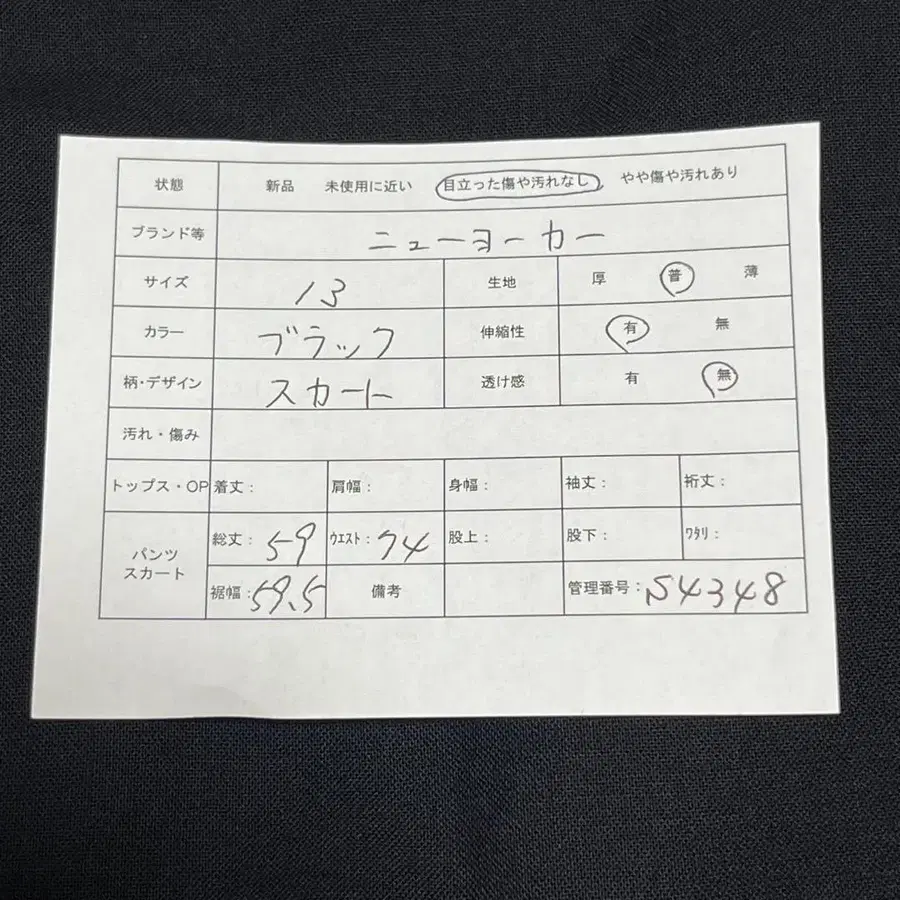 状態 新品 未使用に近い 目立った傷や汚れなし やや傷や汚れあり
ブランド等 ニューヨーカー
サイズ 13 生地 厚 普 薄
カラー ブラック 伸縮性 有 無
柄・デザイン スカート 透け感 有 無
汚れ・傷み
トップス・OP 着丈: 肩幅: 身幅: 袖丈: 裄丈:
パンツ スカート 総丈: 59 ウエスト: 74 股上: 股下: ワタリ:
裾幅: 59.5 備考 管理番号: S4348